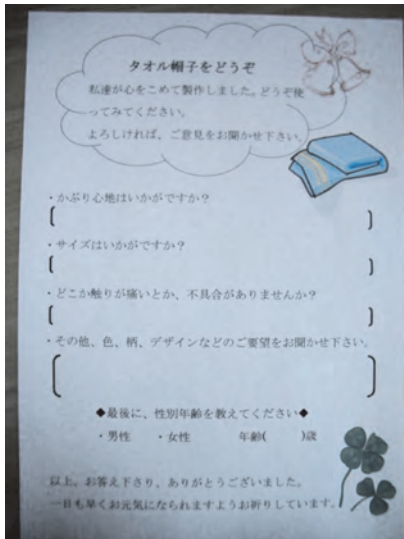 タオル帽子をどうぞ
私達が心をこめて製作しました。どうぞ使
ってみてください。
よろしければ、ご意見をお聞かせ下さい。
・かぶり心地はいかがですか?
[ ]
・サイズはいかがですか?
[ ]
・どこか触りが痛いとか、不具合がありませんか?
[ ]
・その他、色、柄、デザインなどのご要望をお聞かせ下さい。
[ ]
◆最後に、性別年齢を教えてください◆
・男性 ・女性 年齢( )歳
以上、お答え下さり、ありがとうございました。
一日も早くお元気になられますようお祈りしています。